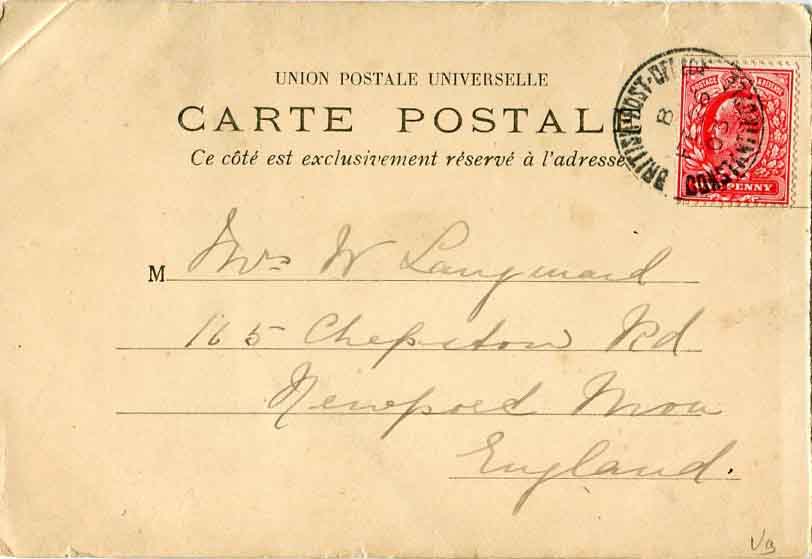 UNION POSTALE UNIVERSELLE
CARTE POSTALE
Ce côté est exclusivement réservé à l'adresse
BRITISH·POST·OFFICE
CONSTANTINOPLE
B
03
POSTAGE & REVENUE
PENNY
M Mrs W Langmaid
165 Chepstow Rd
Newport Mon
England.